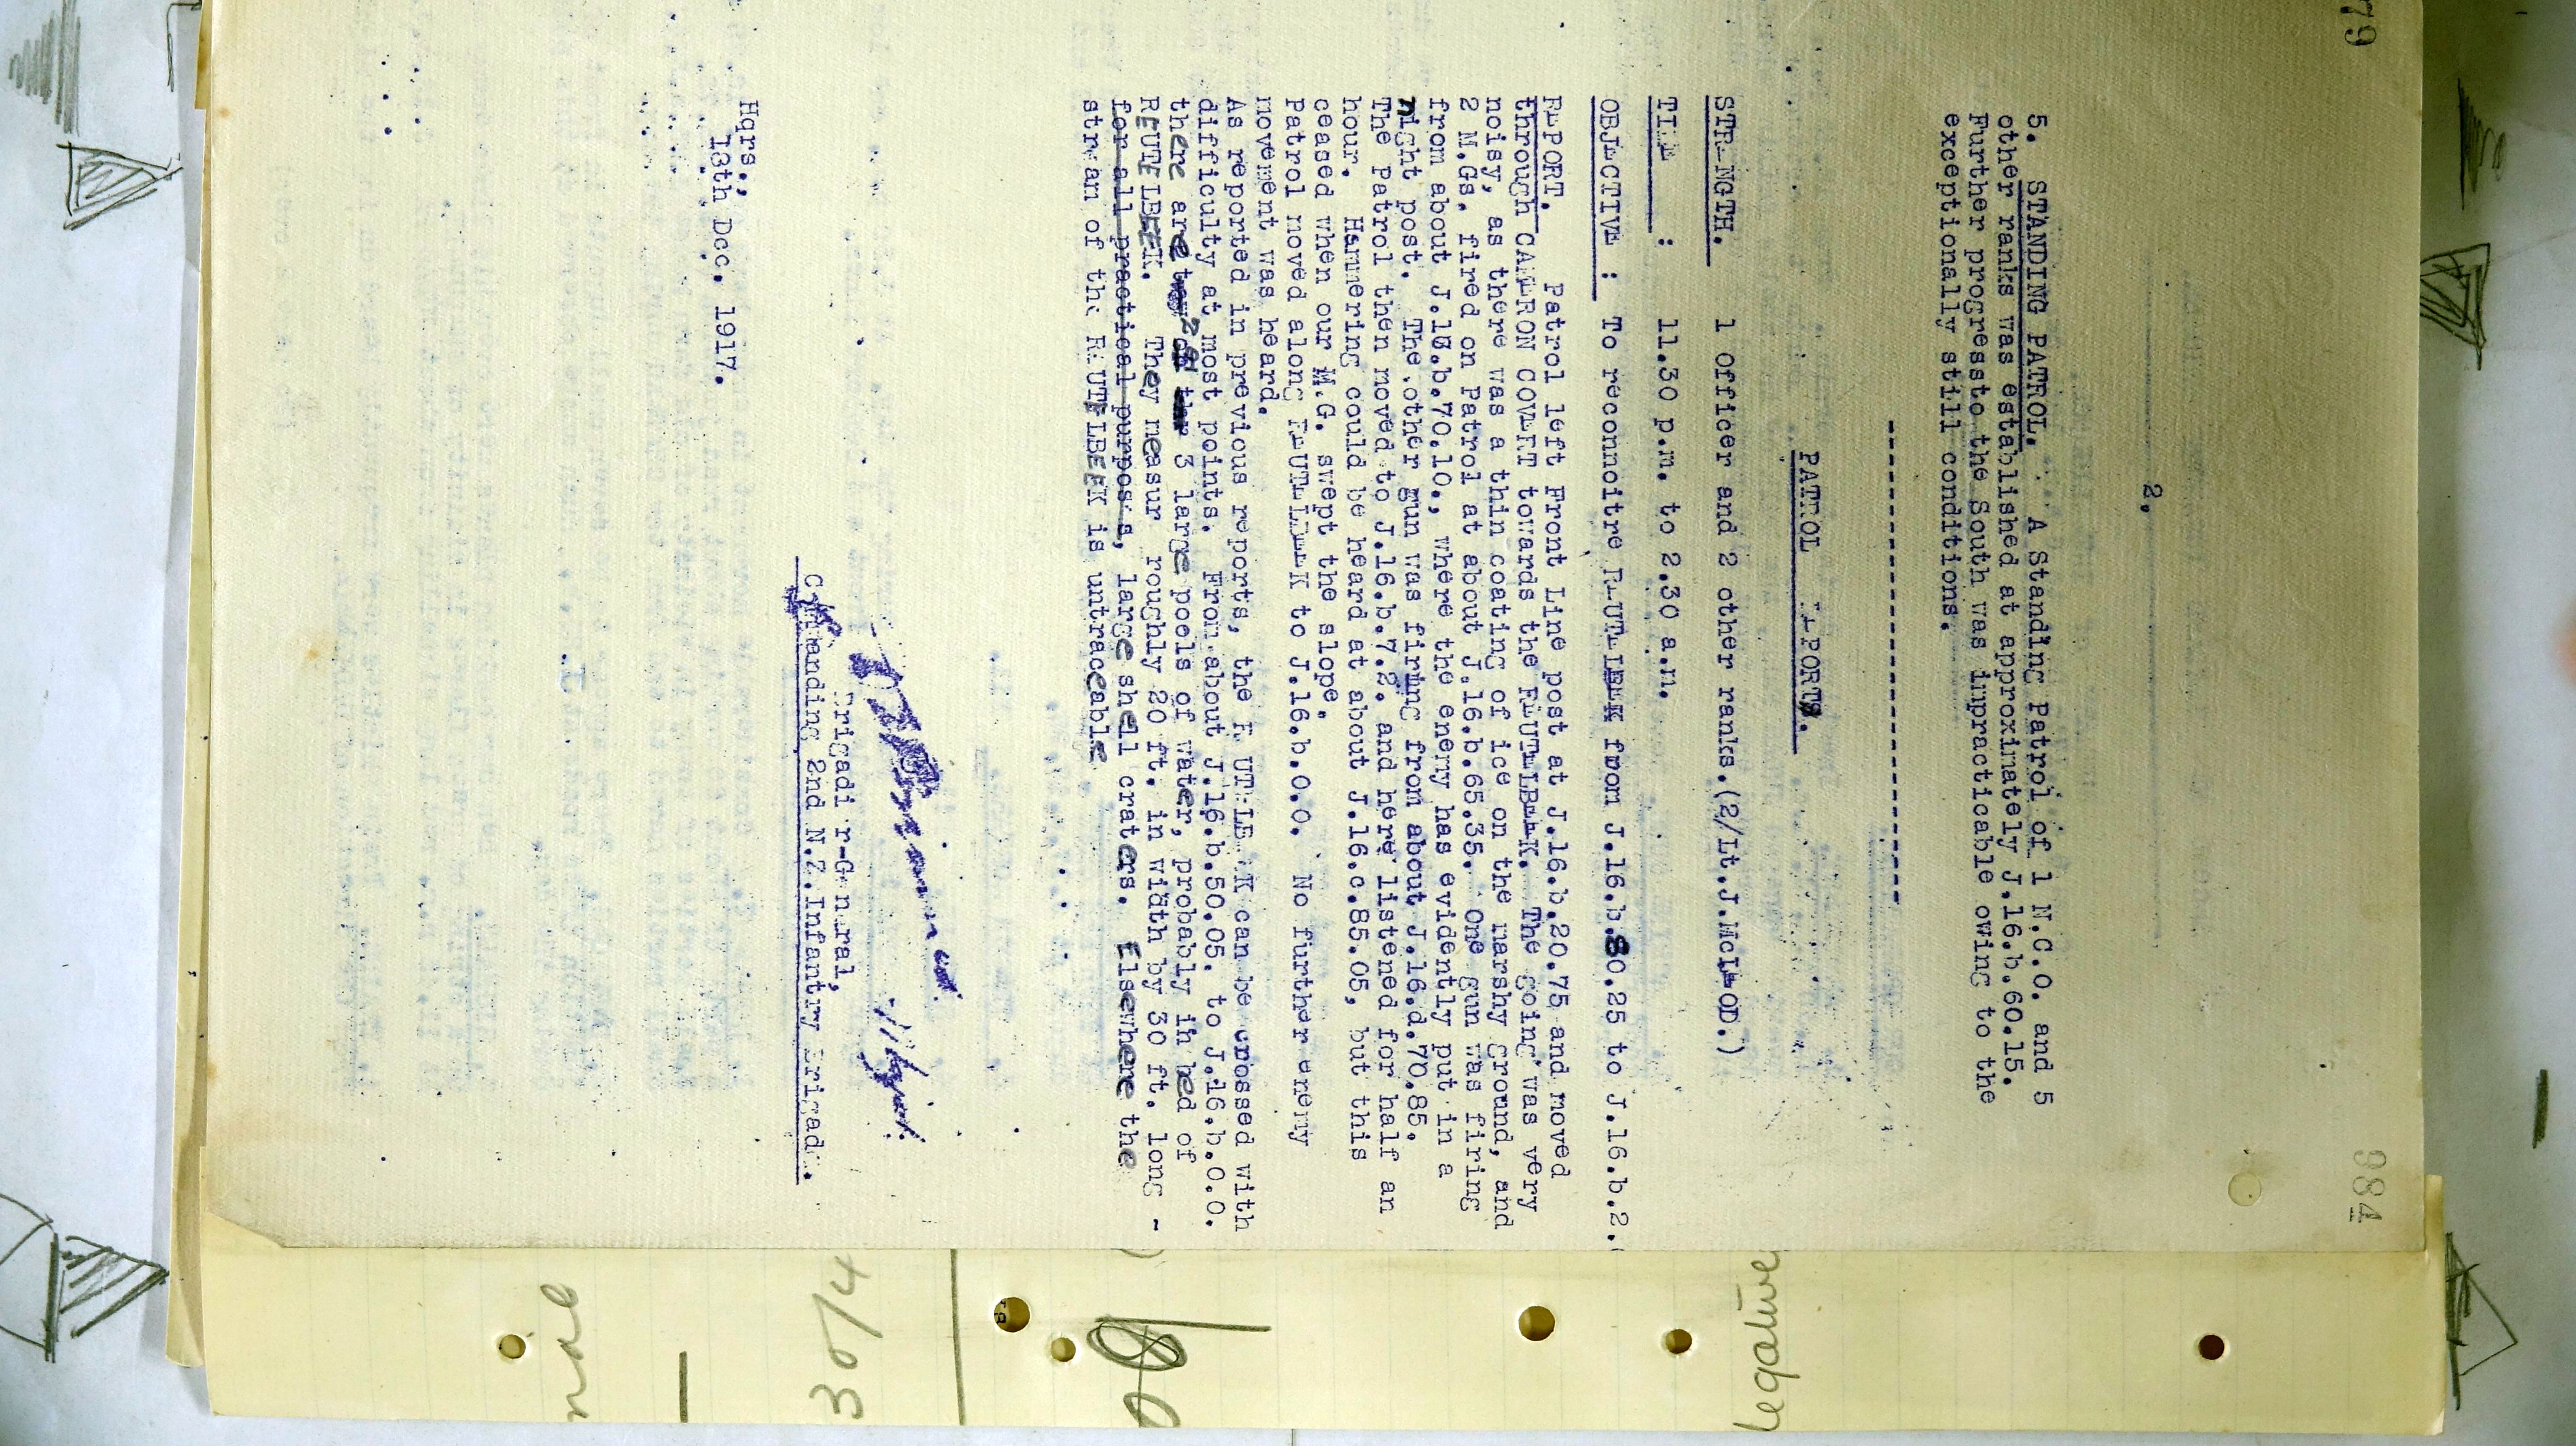 79
984
2.
5. STANDING PATROL. A Standing Patrol of 1 N.C.O. and 5
other ranks was established at approximately J.16.b.60.15.
Further progressto the South was impracticable owing to the
exceptionally still conditions.
PATROL REPORTS.
STRENGTH. 1 Officer and 2 other ranks.(2/Lt.J.McLEOD.)
TIME : 11.30 p.m. to 2.30 a.m.
OBJECTIVE : To reconnoitre REUTELBEEK from J.16.b.80.25 to J.16.b.2.
REPORT. Patrol left Front Line post at J.16.b.20.75 and moved
through CAMERON COVERT towards the REUTELBEEK. The going was very
noisy, as there was a thin coating of ice on the marshy ground, and
2 M.Gs. fired on Patrol at about J.16.b.65.35. One gun was firing
from about J.16.b.70.10., where the enemy has evidently put in a
night post. The other gun was firing from about J.16.d.70.85.
The Patrol then moved to J.16.b.7.2. and here listened for half an
hour. Hammering could be heard at about J.16.c.85.05, but this
ceased when our M.G. swept the slope.
Patrol moved along REUTELBEEK to J.16.b.0.0. No further enemy
movement was heard.
As reported in previous reports, the REUTELBEEK can be crossed with
difficulty at most points. From about J.16.b.50.05. to J.16.b.0.0.
there are 2 or 3 large pools of water, probably in bed of
REUTELBEEK. They measure roughly 20 ft. in width by 30 ft. long -
for all practical purposes, large shell craters. Elsewhere the
stream of the REUTELBEEK is untraceable
Brigadier-General,
Commanding 2nd N.Z.Infantry Brigade.
Hqrs.,
13th Dec. 1917.
30/4
legative